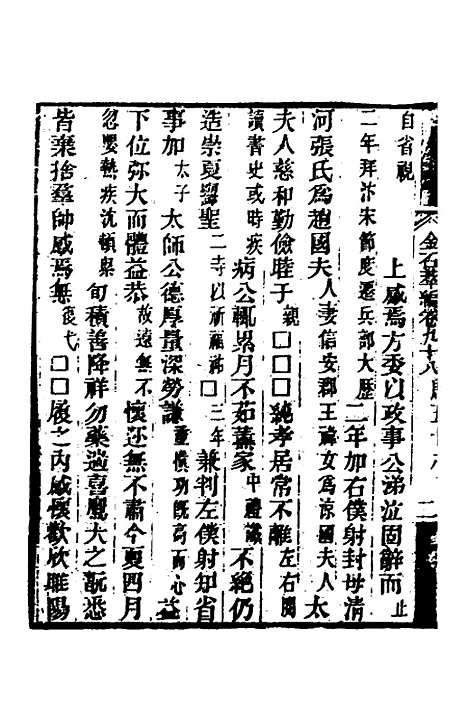 金石萃編卷九十八唐五十八 二
自省視上感焉方委以政事公涕泣固辭而止
二年拜汴宋節度遷兵部大歷二年加右僕射封母清
河張氏爲趙國夫人妻信安郡王禕女爲涼國夫人太
夫人慈和勤儉睦于親□□□純孝居常不離左右閱
讀書史或時疾病公輒累月不茹葷家中禮讖不絕仍
造崇夏寧聖二寺以祈福祐□三年兼判左僕射知省
事加太子太師公德厚量深勞謙重慎功旣高而心益
下位弥大而體益恭故遠無不懷迩無不肅今夏四月
忽嬰熱疾沈頓累旬積善降祥勿藥遄喜鷹犬之翫悉
皆棄捨羣帥感焉無復弋□□履之內感懷歡欣睢陽